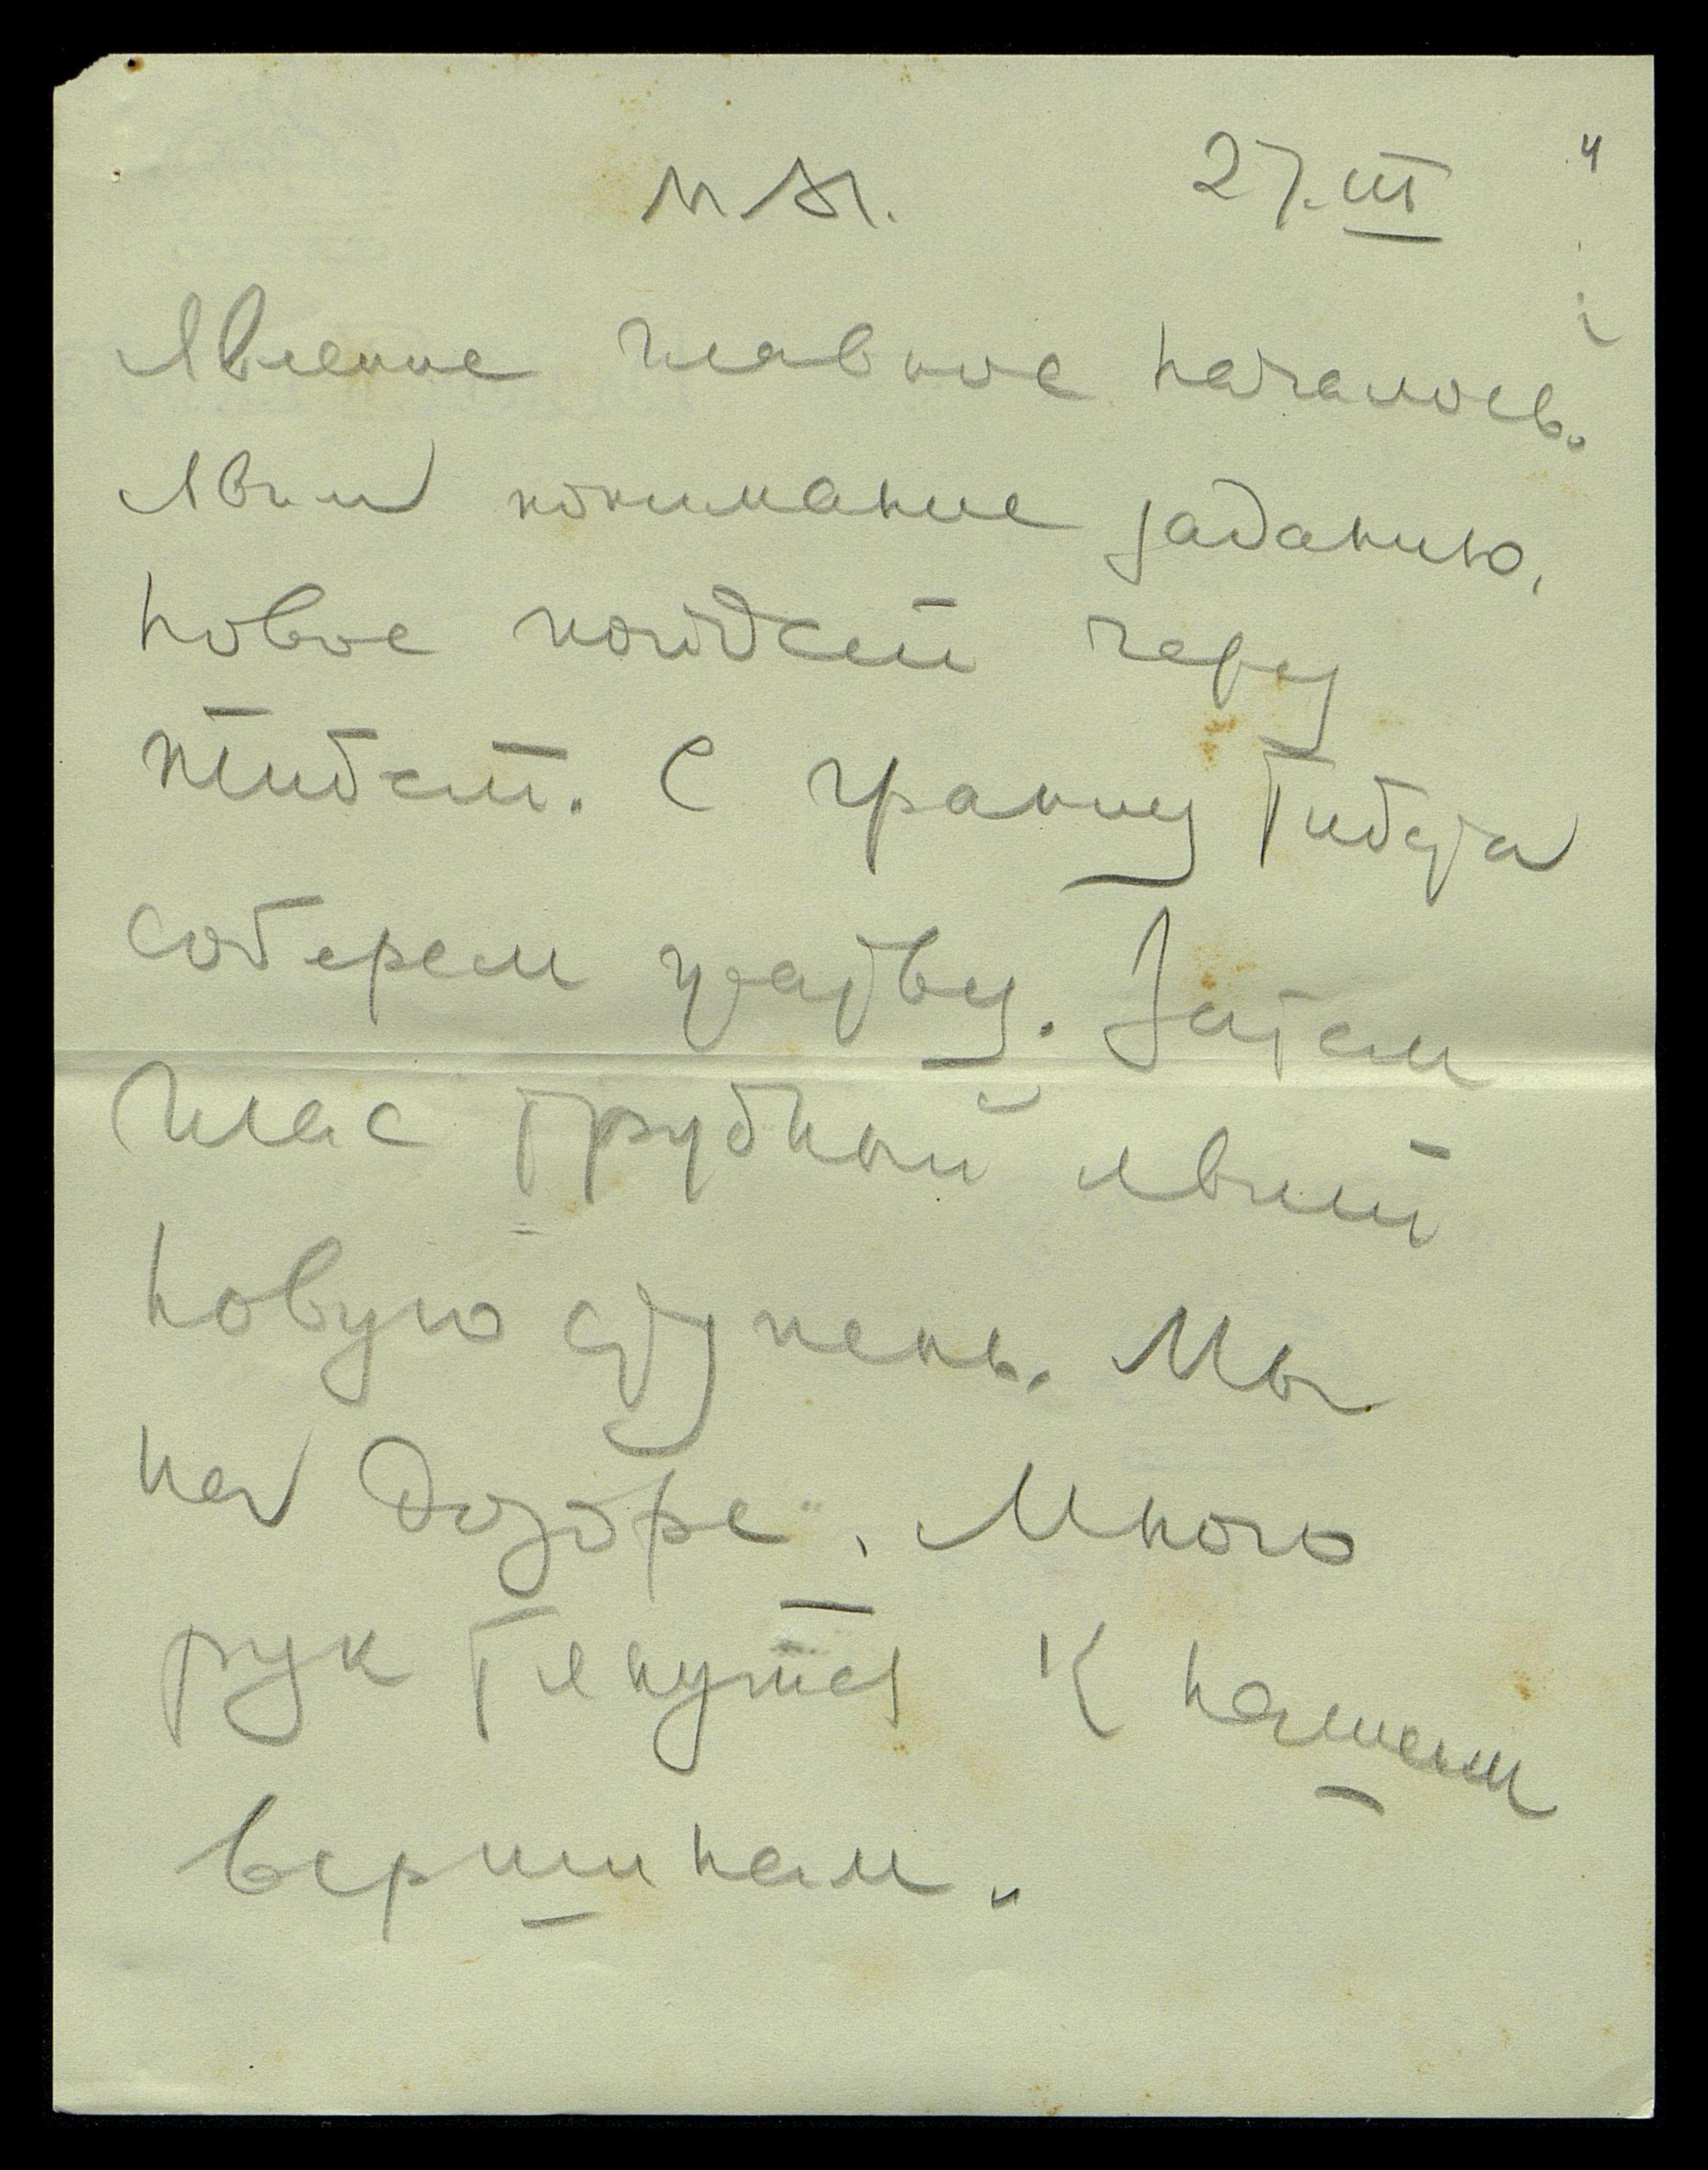 27.III
Явление главное началось.
Яви понимание заданию,
новое пойдет через
Тибет. С границ Тибета
соберем жатву. Затем
глас трубный явит
новую ступень. Мы
на дозоре. Много
рук тянутся к нашим
вершинам.